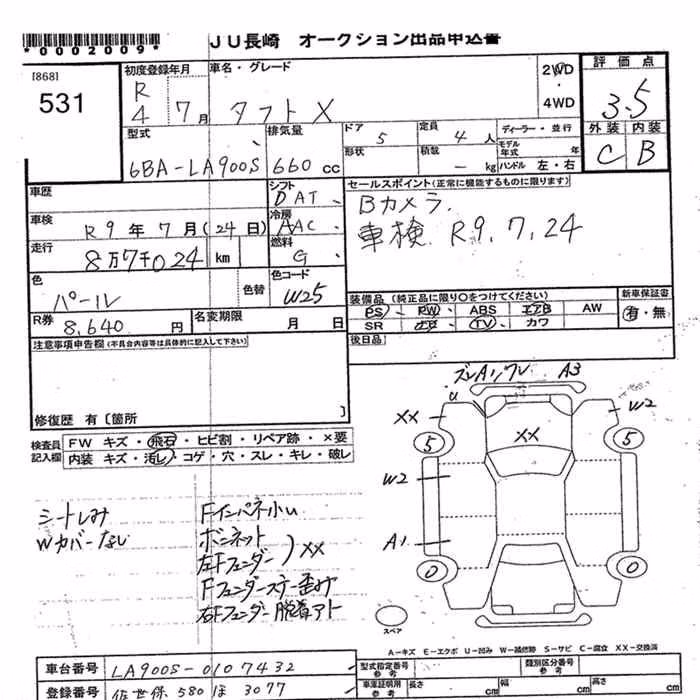 *0002009*
JU長崎 オークション出品申込書
[868]
531
初度登録年月
R 4 7月
車名・グレード
タフトX
2WD ・ 4WD
評価点
3.5
型式
6BA-LA900S
排気量
660 cc
ドア 5
定員 4人
ディーラー・並行
形状
積載 - kg
モデル年式 年
ハンドル 左・右
外装 内装
C B
車歴
シフト DAT
セールスポイント(正常に機能するものに限ります)
Bカメラ.
車検 R9.7.24
車検 R9年7月(24日)
冷房 AAC
走行 8万7千024 km
燃料 G
色 パール
色替
色コード W25
装備品 (純正品に限り○をつけてください)
新車保証書
PS・PW・ABS エアB AW
有・無
SR TV・カワ
R券 8,640 円
名変期限 月 日
後日品
注意事項申告欄(不具合内容等は具体的に記入して下さい)
修復歴 有〔箇所 〕
検査員記入欄
FW キズ・飛石・ヒビ割・リペア跡・×要
内装 キズ・汚レ・コゲ・穴・スレ・キレ・破レ
ズレA1ワレ A3
U
XX W2
5 XX 5
W2
A1
0 0
スペア
シートしみ
Wカバーなし
Fインパネ小U
ボンネット
左Fフェンダー ) XX
Fフェンダーステー歪み
右Fフェンダー脱着アト
A-キズ E-エクボ U-凹み W-補修跡 S-サビ C-腐食 XX-交換済
車台番号 LA900S-0107432
型式指定番号 参考
類別区分番号 参考
登録番号 佐世保 580 ほ 3077
車庫証明用 参考 長さ cm 幅 cm 高さ cm